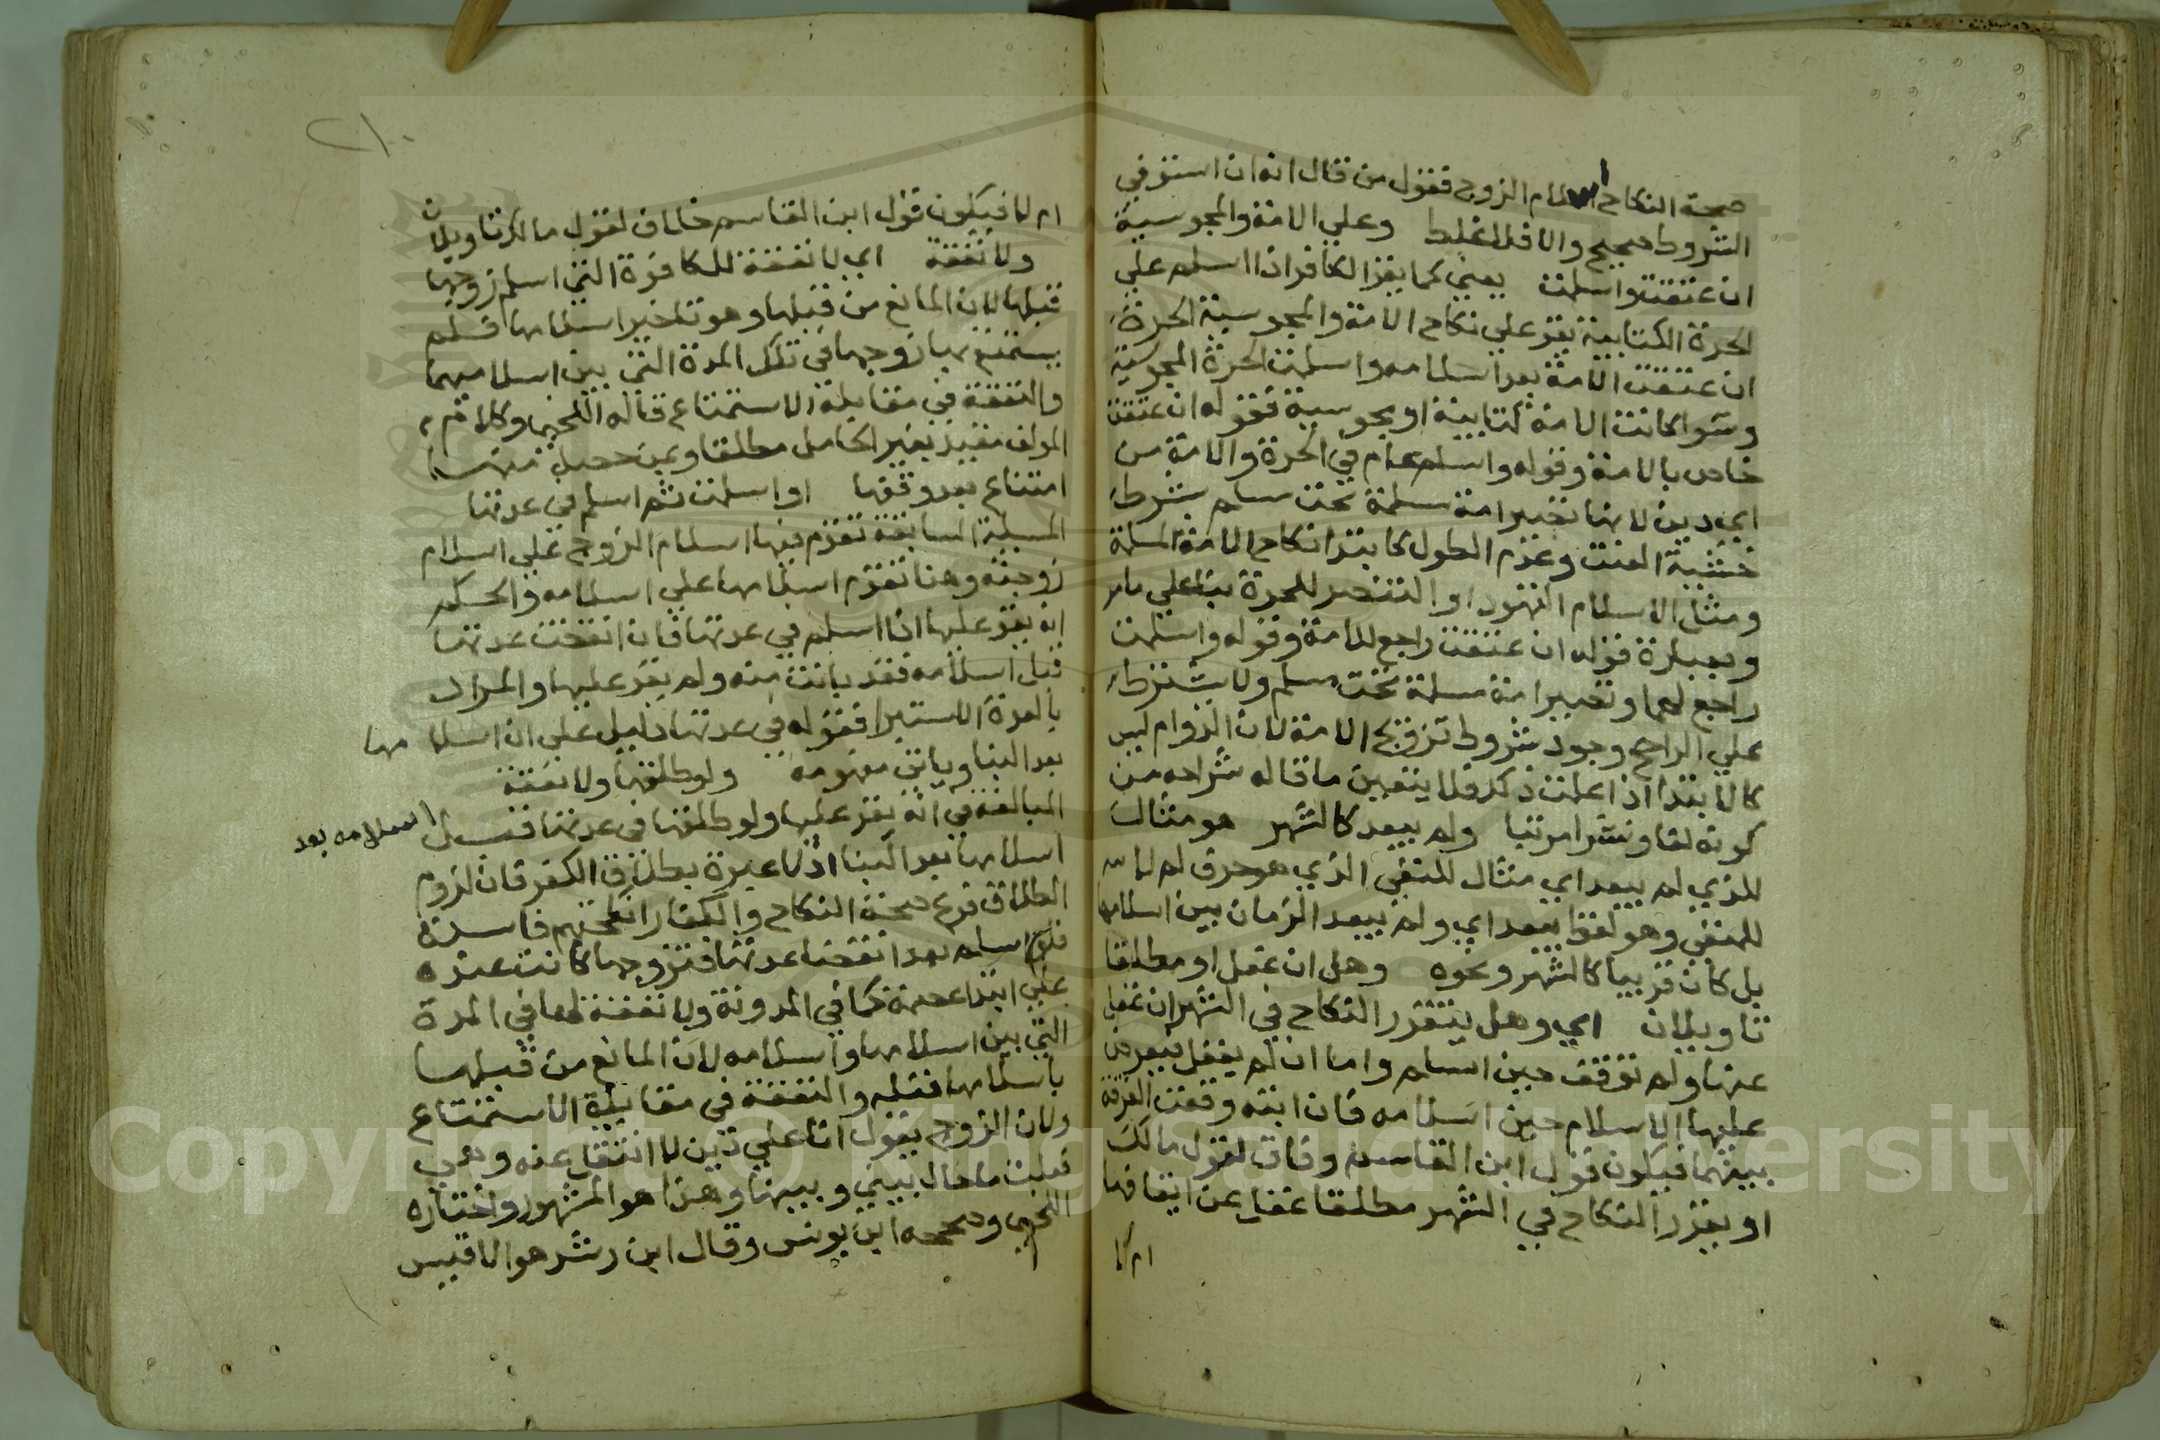 صحة النكاح اسلام الزوج فقول من قال انه ان استوفي
الشروط صحيح والا فلا غلط وعلي الامة والمجوسية
ان عتقت واسلمت يعني كما يقر الكافر اذا اسلم علي
الحرة الكتابية يقر علي نكاح الامة والمجوسية الحرة
ان عتقت الامة بعد اسلامه واسلمت الحرة المجوسية
وسوا كانت الامة كتابية او مجوسية فقوله ان عتقت
خاص بالامة وقوله واسلم عام في الحرة والامة من
اي دين لانها تصير امة مسلمة تحت مسلم بشرط
خشية العنت وعدم الطول كابتدا نكاح الامة المسلمة
ومثل الاسلام التهود او التنصر للحرة بنا علي ما مر
وبعبارة قوله ان عتقت راجع للامة وقوله واسلمت
راجع لهما وتصير امة مسلمة تحت مسلم ولا يشترط
علي الراجح وجود شروط تزويج الامة لان الدوام ليس
كالابتدا اذا علمت ذكك فلا يتعين ما قاله شراحه من
كونه لفا ونشرا مرتبا ولم يبعد كالشهر هو مثال
للذي لم يبعد اي مثال للمنفي الذي هو حرف لم لا
للمنفي وهو لفظ يبعد اي ولم يبعد الزمان بين اسلامهما
بل كان قريبا كالشهر ونحوه وهل ان غفل او مطلقا
تاويلان اي وهل يتقرر النكاح في الشهر ان غفل
عنها ولم توقف حين اسلم واما ان لم يغفل فيعرض
عليها الاسلام حين اسلامه فان ابته وقعت الفرقة
بينهما فيكون قول ابن القاسم وفاق لقول مالك
او يقرر النكاح في الشهر مطلقا غفل عن ايقافها
ام لا
٢١٠
ام لا فيكون قول ابن القاسم خلاف لقول مالك تاويلان
ولا نفقة اي لا نفقة للكافرة التي اسلم زوجها
قبلها لان المانع من قبلها وهو تاخير اسلامها فلم
يستمتع بها زوجها في تلك المدة التي بين اسلامهما
والنفقة في مقابلة الاستمتاع قاله اللخمي وكلام
المولف مقيد بغير الحامل مطلقا وبمن حصل منها
امتناع بعد وقفها او اسلمت ثم اسلم في عدتها
المسيلة السابقة تقدم فيها اسلام الزوج علي اسلام
زوجته وهنا تقدم اسلامها علي اسلامه والحكم
انه يقر عليها اذا اسلم في عدتها فان انقضت عدتها
قبل اسلامه فقد بانت منه ولم يقر عليها والمراد
بالعدة الاستبرا فقوله في عدتها دليل علي ان اسلامها
بعد البنا وياتي مفهومه ولو طلقها ولا نفقة
المبالغة في انه يقر عليها ولو طلقها في عدتها قبل اسلامه بعد
اسلامها بعد البنا اذ لا عبرة بطلاق الكفر فان لزوم
الطلاق فرع صحة النكاح والكفار انكحتهم فاسدة
فلو اسلم بعد انقضا عدتها فتزوجها كانت عنده
علي ابتدا عصمة كما في المدونة ولا نفقة لها في المدة
التي بين اسلامها واسلامه لان المانع من قبلها
باسلامها قبله والنفقة في مقابلة الاستمتاع
ولان الزوج يقول انا علي ديني لا انتقل عنه وهي
فعلت ما حال بيني وبينها وهذا هو المشهور واختاره
اللخمي وصححه ابن يونس وقال ابن رشد هو الاقيس